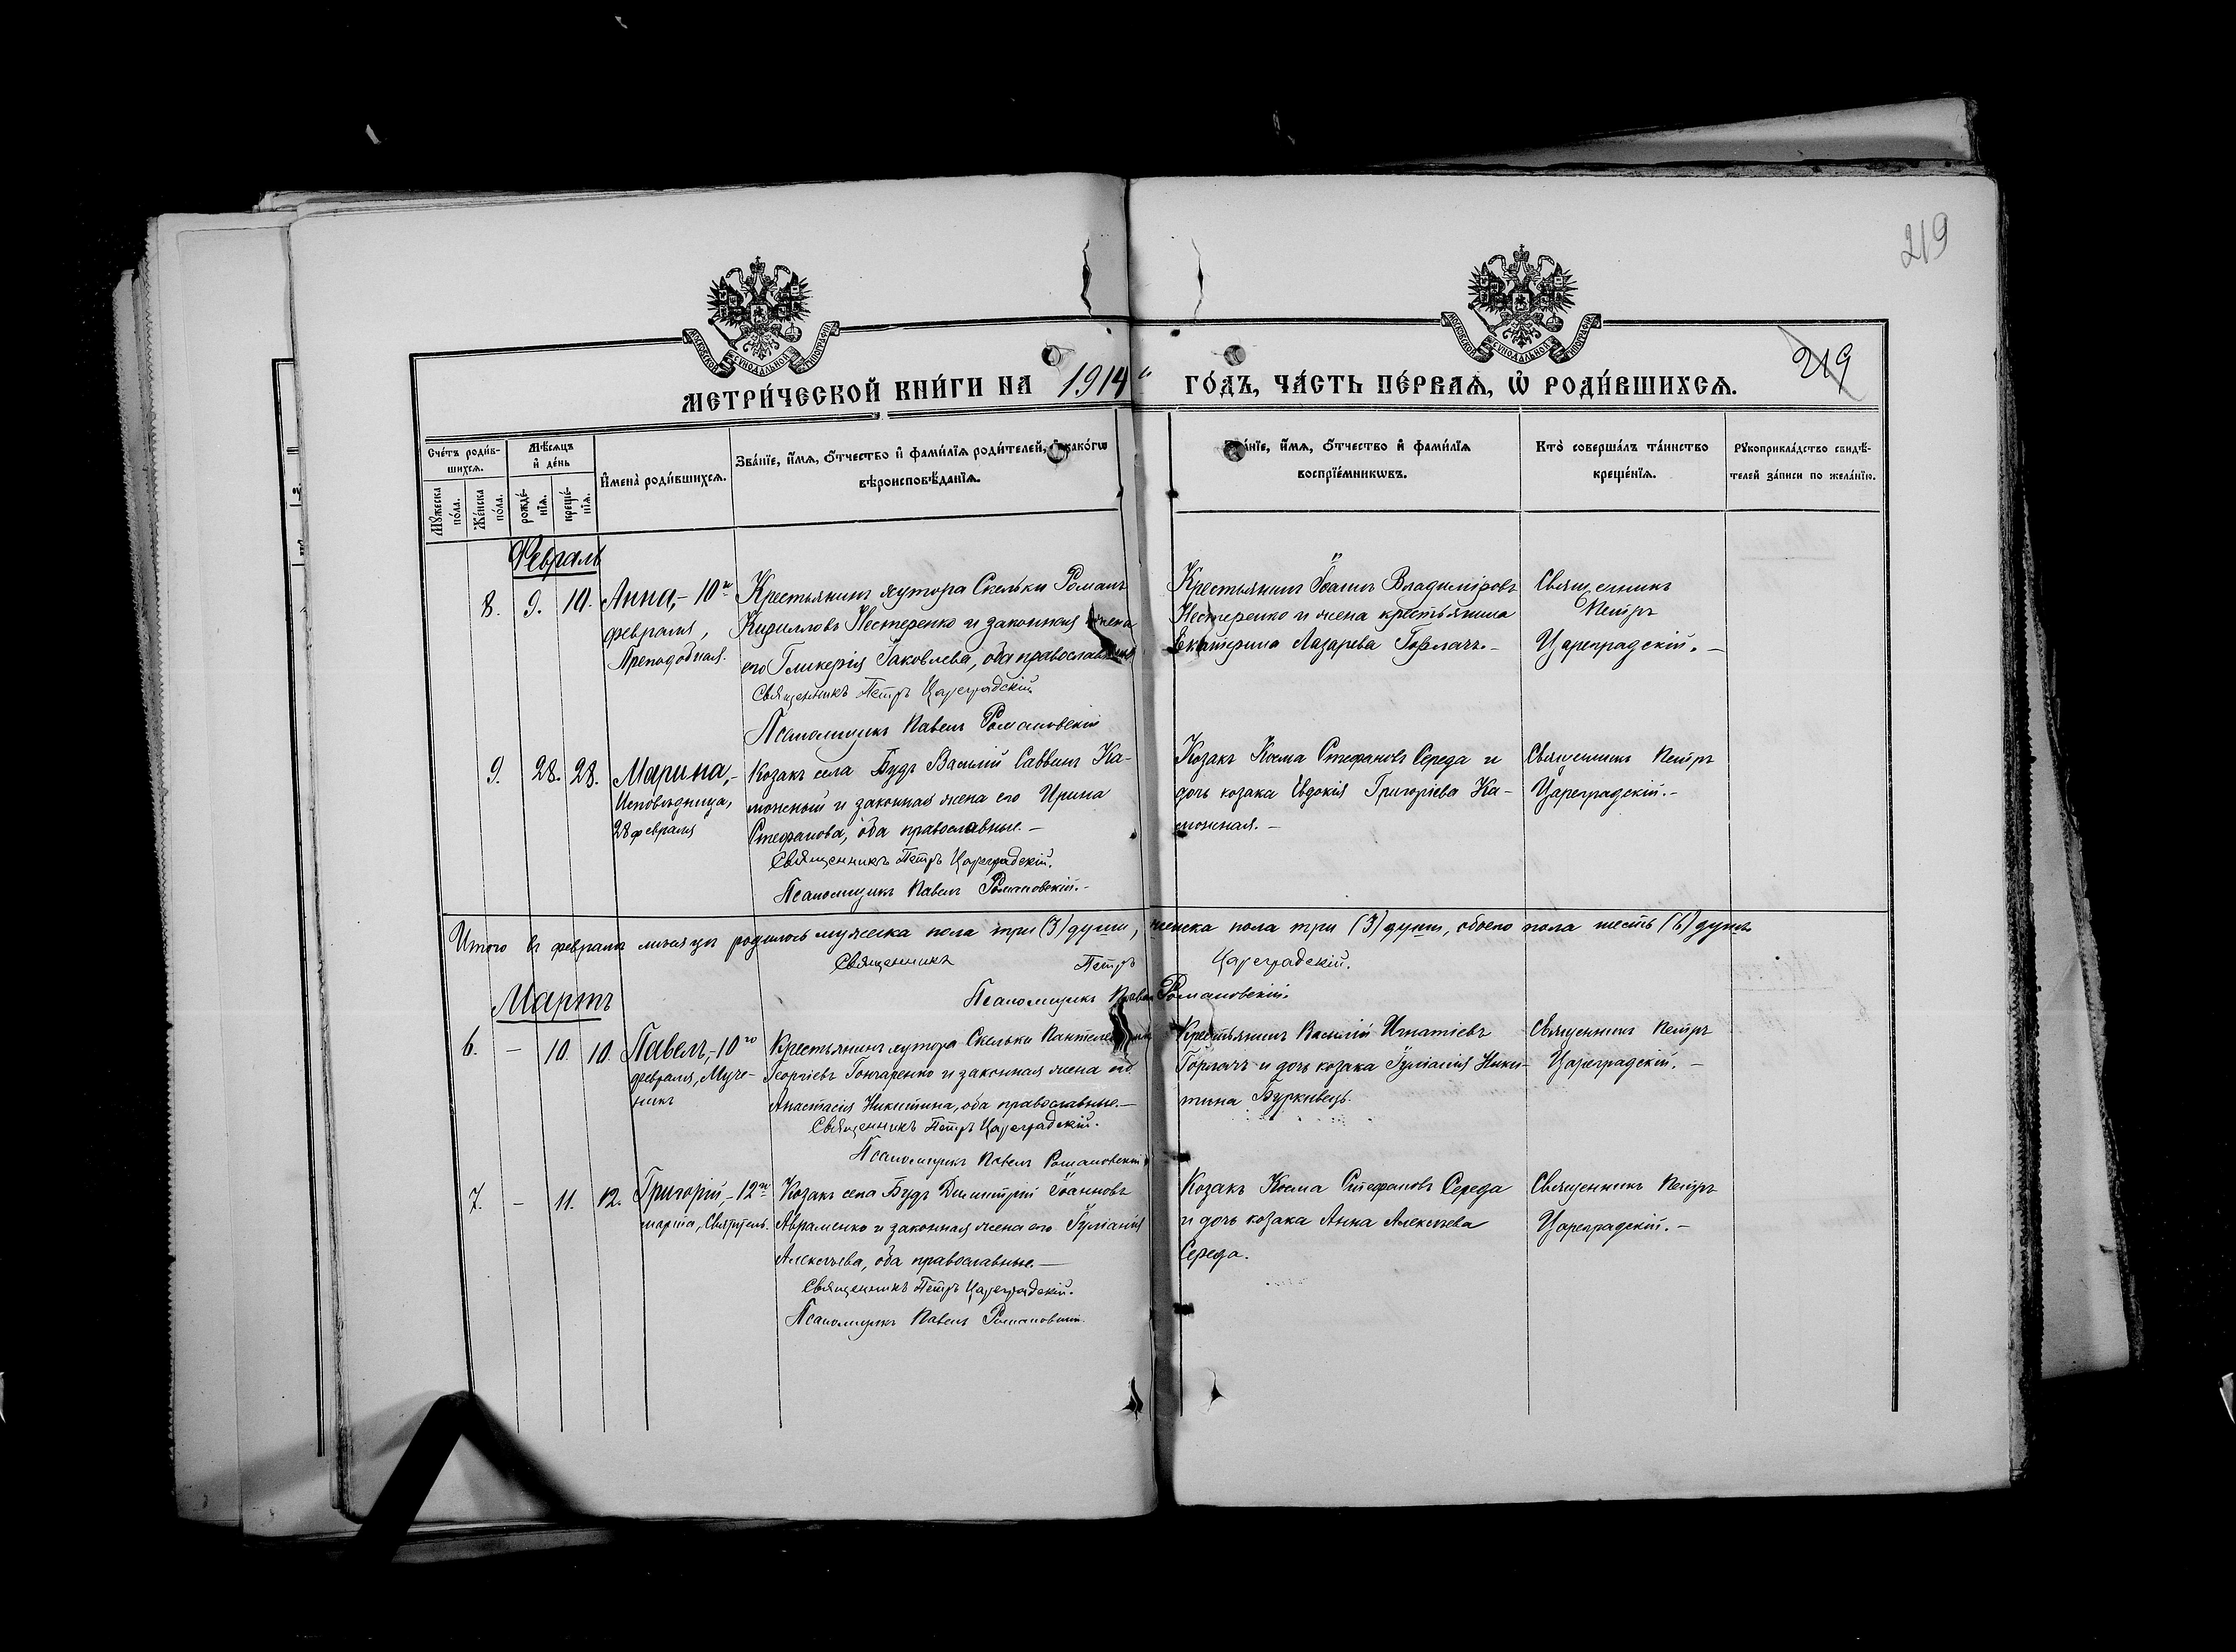 219
219
МОСКОВСКОЙ СѴНОДАЛЬНОЙ ТИПОГРАФІИ
МОСКОВСКОЙ СѴНОДАЛЬНОЙ ТИПОГРАФІИ
МЕТРИ́ЧЕСКОЙ КНИ́ГИ НА 1914 ГО́ДЪ, ЧА́СТЬ ПЕ́РВАѦ, Ѡ҆ РОДИ́ВШИХСѦ.
Сче́тъ роди́в-
шихсѧ.
Мѣ́сѧцъ
и҆ де́нь
Мꙋ́жеска
по́ла.
Же́нска
по́ла.
рожде́-
нїѧ.
креще́-
нїѧ.
И҆мена̀ роди́вшихсѧ.
Зва́нїе, и҆́мѧ, ѻ҆́тчество и҆ фами́лїѧ роди́телей, и҆ како́гѡ
вѣроисповѣ́данїѧ.
Зва́нїе, и҆́мѧ, ѻ҆́тчество и҆ фами́лїѧ
воспрїе́мникѡвъ.
Кто̀ соверша́лъ та́инство
креще́нїѧ.
Рꙋкоприкла́дство свидѣ́-
телей за́писи по жела́нїю.
Февраль
8. 9. 10. Анна, - 10го
февраля,
Преподобная.
Крестьянинъ хутора Скельки Романъ
Кирилловъ Нестеренко и законная жена
его Гликерія Іаковлева, оба православные
Священникъ Петръ Цареградскій
Псаломщикъ Павелъ Романовскій
Крестьянинъ Іоаннъ Владиміровъ
Нестеренко и жена крестьянина
Екатерина Лазарева Горлачъ. -
Священникъ
Петръ
Цареградскій. -
9. 28. 28. Марина, -
Исповѣдница,
28 февраля
Козакъ села Будъ Василій Саввинъ Ка-
можный и законная жена его Ирина
Стефанова, оба православные. -
Священникъ Петръ Цареградскій.
Псаломщикъ Павелъ Романовскій. -
Козакъ Косма Стефановъ Середа и
дочь козака Евдокія Григоріева Ка-
можная. -
Священникъ Петръ
Цареградскій. -
Итого въ февралѣ мѣсяцѣ родилось мужеска пола три (3) души, женска пола три (3) души, обоего пола шесть (6) душъ.
Священникъ Петръ Цареградскій.
Псаломщикъ Павелъ Романовскій.
Мартъ
6. - 10. 10. Павелъ, - 10го
февраля, Муче-
никъ
Крестьянинъ хутора Скельки
Георгіевъ Гончаренко и законная жена его
Анастасія Никитина, оба православные. -
Священникъ Петръ Цареградскій.
Псаломщикъ Павелъ Романовскій
Крестьянинъ Василій Игнатіевъ
Горлачъ и дочь козака Іуліанія Ники-
тина Буркивець.
Священникъ Петръ
Цареградскій. -
7. - 11. 12. Григорій, - 12го
марта, Святитель.
Козакъ села Будъ Димитрій Іоанновъ
Авраменко и законная жена его Іуліанія
Алексѣева, оба православные. -
Священникъ Петръ Цареградскій.
Псаломщикъ Павелъ Романовскій.
Козакъ Косма Стефановъ Середа
и дочь козака Анна Алексѣева
Середа.
Священникъ Петръ
Цареградскій. -